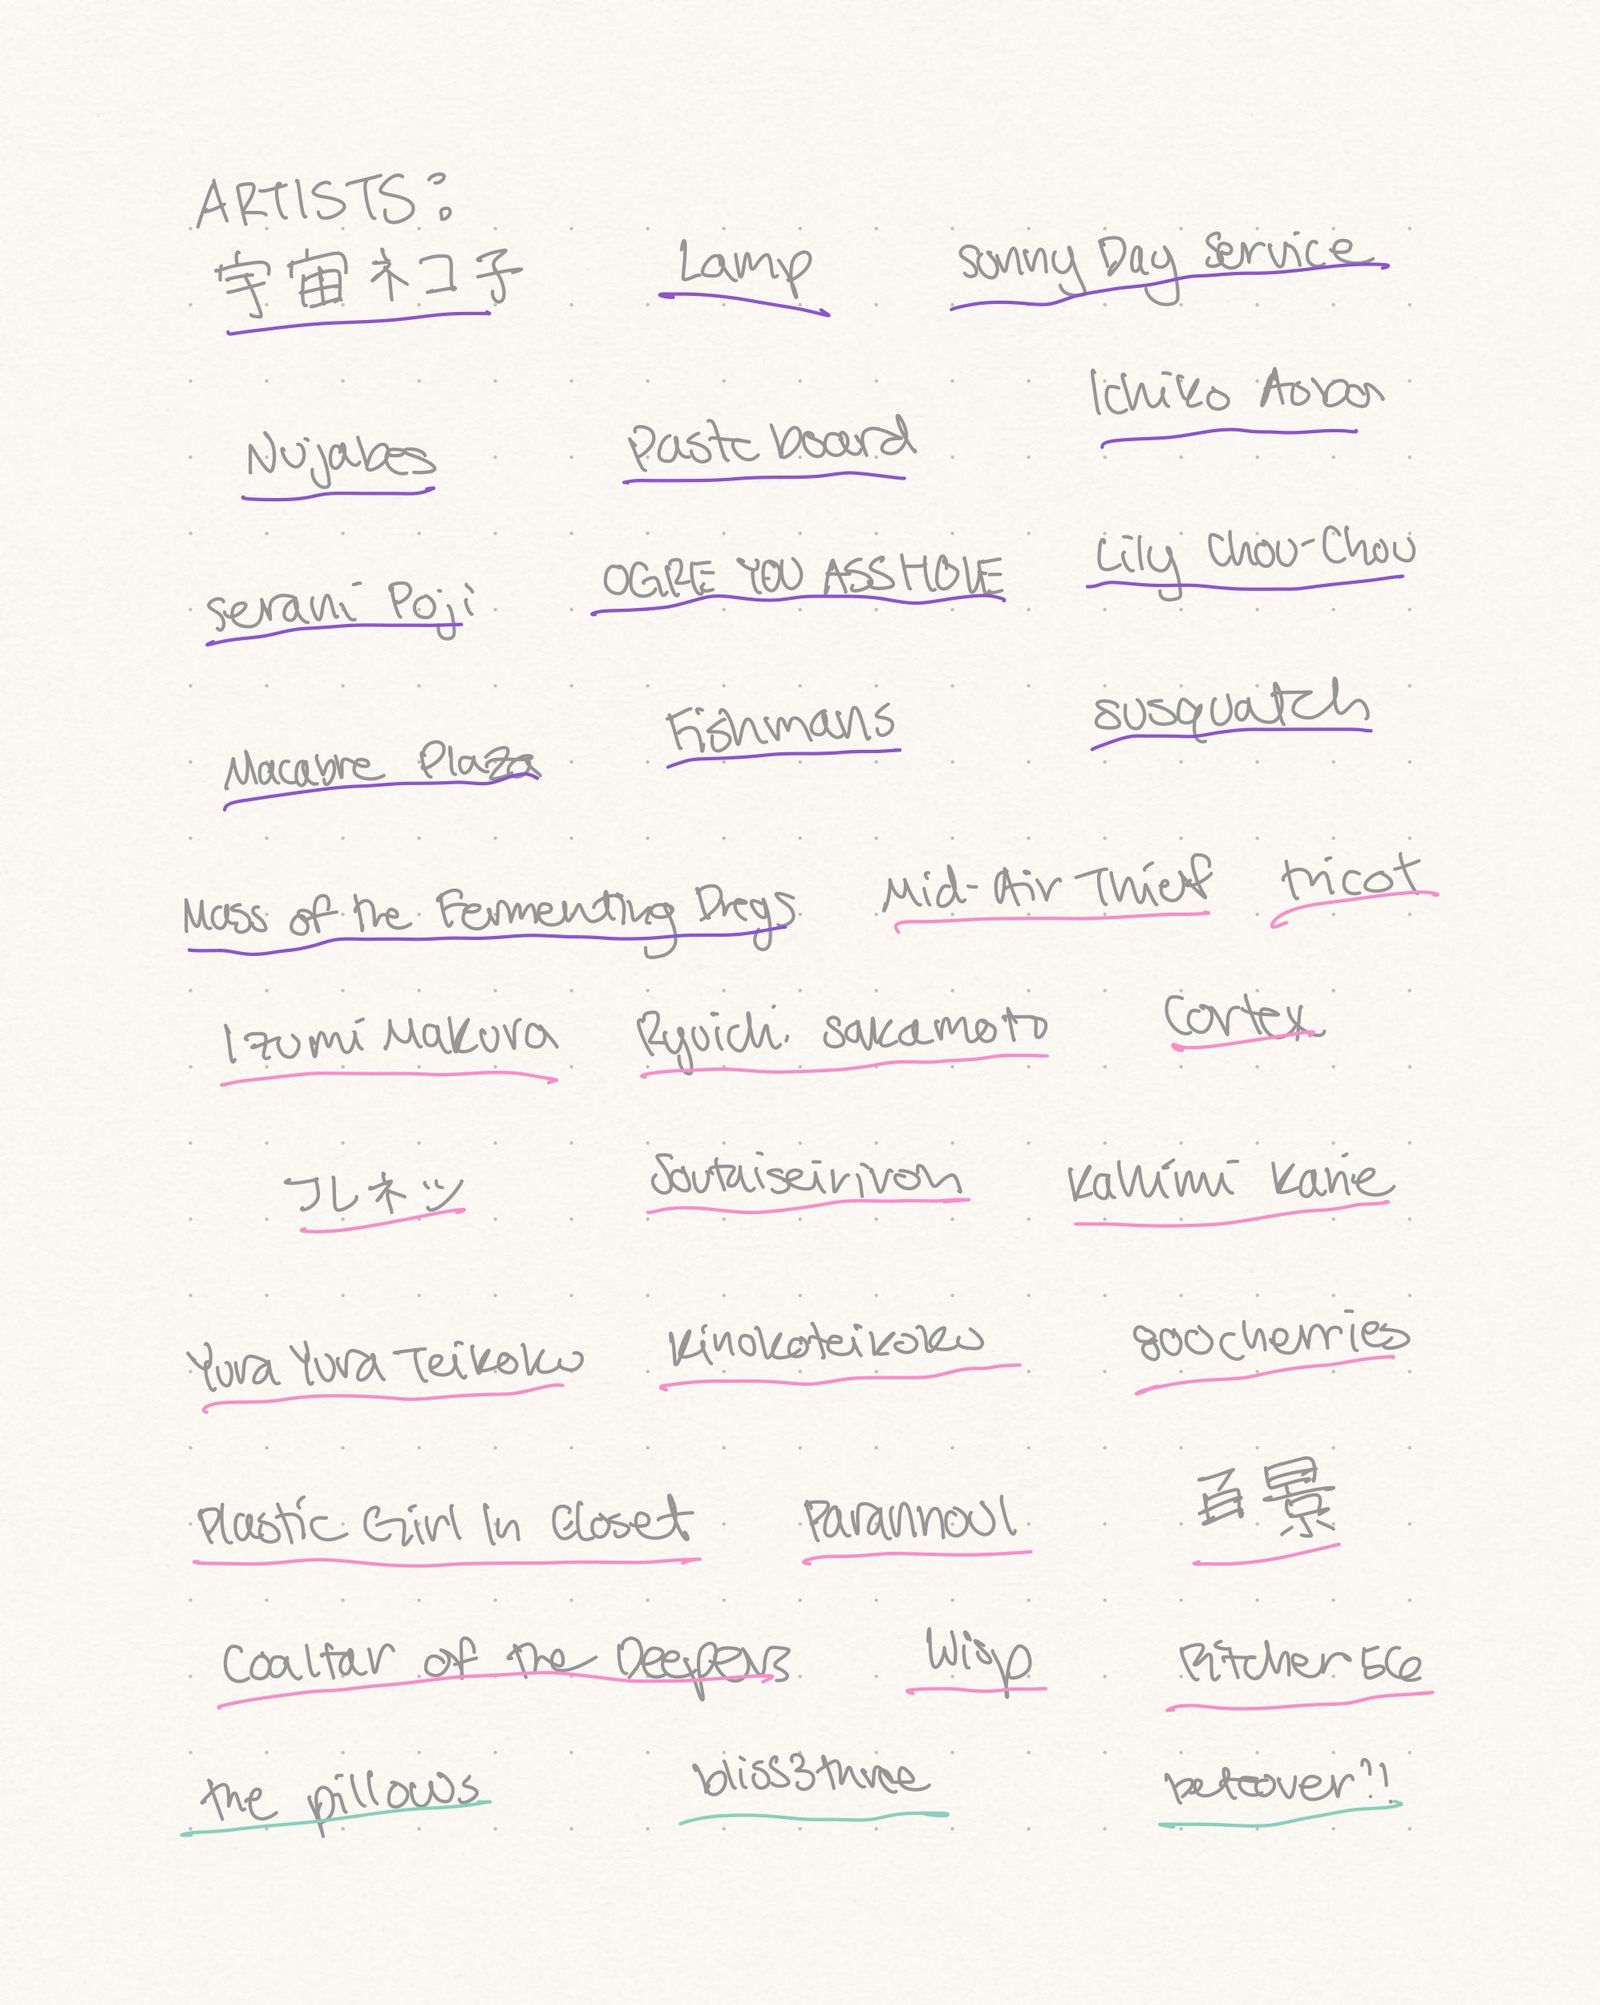 ARTISTS:
宇宙ネコ子 Lamp Sunny Day Service
Ichiko Aoba
Nujabes Pasteboard
Lily Chou-Chou
Serani Poji OGRE YOU ASSHOLE
Macabre Plaza Fishmans susquatch
Mass of the Fermenting Dregs Mid-Air Thief tricot
Izumi Makura Ryuichi Sakamoto Cortex
コレネツ Soutaiseiriron Kahimi Karie
Yura Yura Teikoku Kinokoteikoku 800cherries
Plastic Girl In Closet Parannoul 百景
Coaltar of the Deepers Wisp Pitcher56
the pillows bliss3three betcover!!